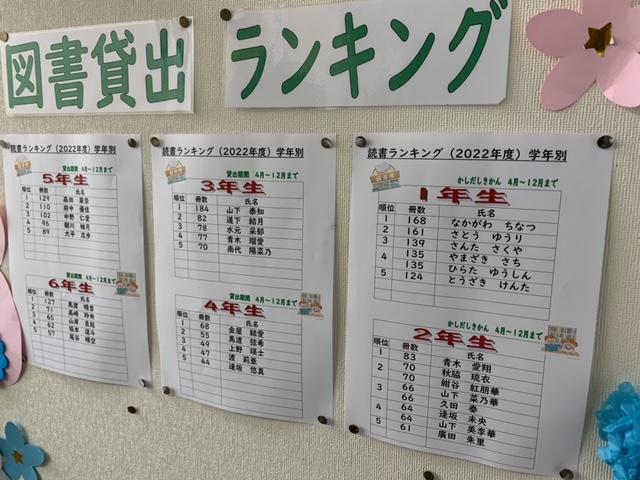 図書貸出
ランキング
読書ランキング（2022年度）学年別
貸出期間 4月～12月まで
5年生
順位 冊数 氏名
1 129
2 110
3 102 中野
4 96 朝川
5 89 大平
貸出期間 4月～12月まで
6年生
順位 冊数 氏名
1 127
2 71
3 65
4 62
5 57
読書ランキング（2022年度）学年別
貸出期間 4月～12月まで
3年生
順位 冊数 氏名
1 184 山下 泰知
2 82 道下 結月
3 78 水元 采郁
4 77 青木 瑠愛
5 70 南代 陽菜乃
貸出期間 4月～12月まで
4年生
順位 冊数 氏名
1 68 金屋 結愛
2 55 馬渡 弦希
3 49 上野 瑛士
4 47 渡 莉亜
5 44 逢坂 悠真
読書ランキング（2022年度）学年別
かしだしきかん 4月～12月まで
1年生
順位 冊数 氏名
1 168 なかがわ ちなつ
2 161 さとう ゆうり
3 139 さんた さくや
4 135 やまざき さち
135 ひらた ゆうしん
5 124 とうざき けんた
かしだしきかん 4月～12月まで
2年生
順位 冊数 氏名
1 83 青木 愛翔
2 70 秋脇 琉衣
70 紺谷 紅朋華
3 66 山下 菜乃華
66 久田 奏
4 64 逢坂 未央
64 山下 美李華
5 61 廣田 朱里